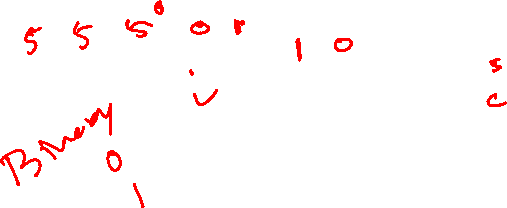 5 5 5° or 1 0
s
i c
Binary
0
1